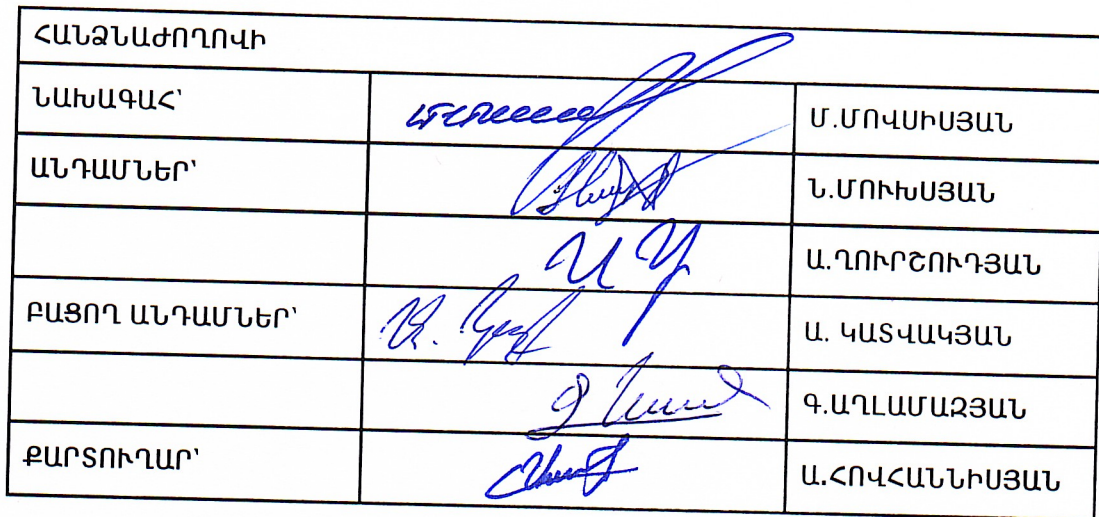 ՀԱՆՁՆԱԺՈՂՈՎԻ
ՆԱԽԱԳԱՀ՝ Մ.ՄՈՎՍԻՍՅԱՆ
ԱՆԴԱՄՆԵՐ՝ Ն.ՄՈՒԽՍՅԱՆ
Ա.ՂՈՒՐՇՈՒԴՅԱՆ
ԲԱՑՈՂ ԱՆԴԱՄՆԵՐ՝ Ա. ԿԱՏՎԱԿՅԱՆ
Գ.ԱՂԼԱՄԱԶՅԱՆ
ՔԱՐՏՈՒՂԱՐ՝ Ա.ՀՈՎՀԱՆՆԻՍՅԱՆ